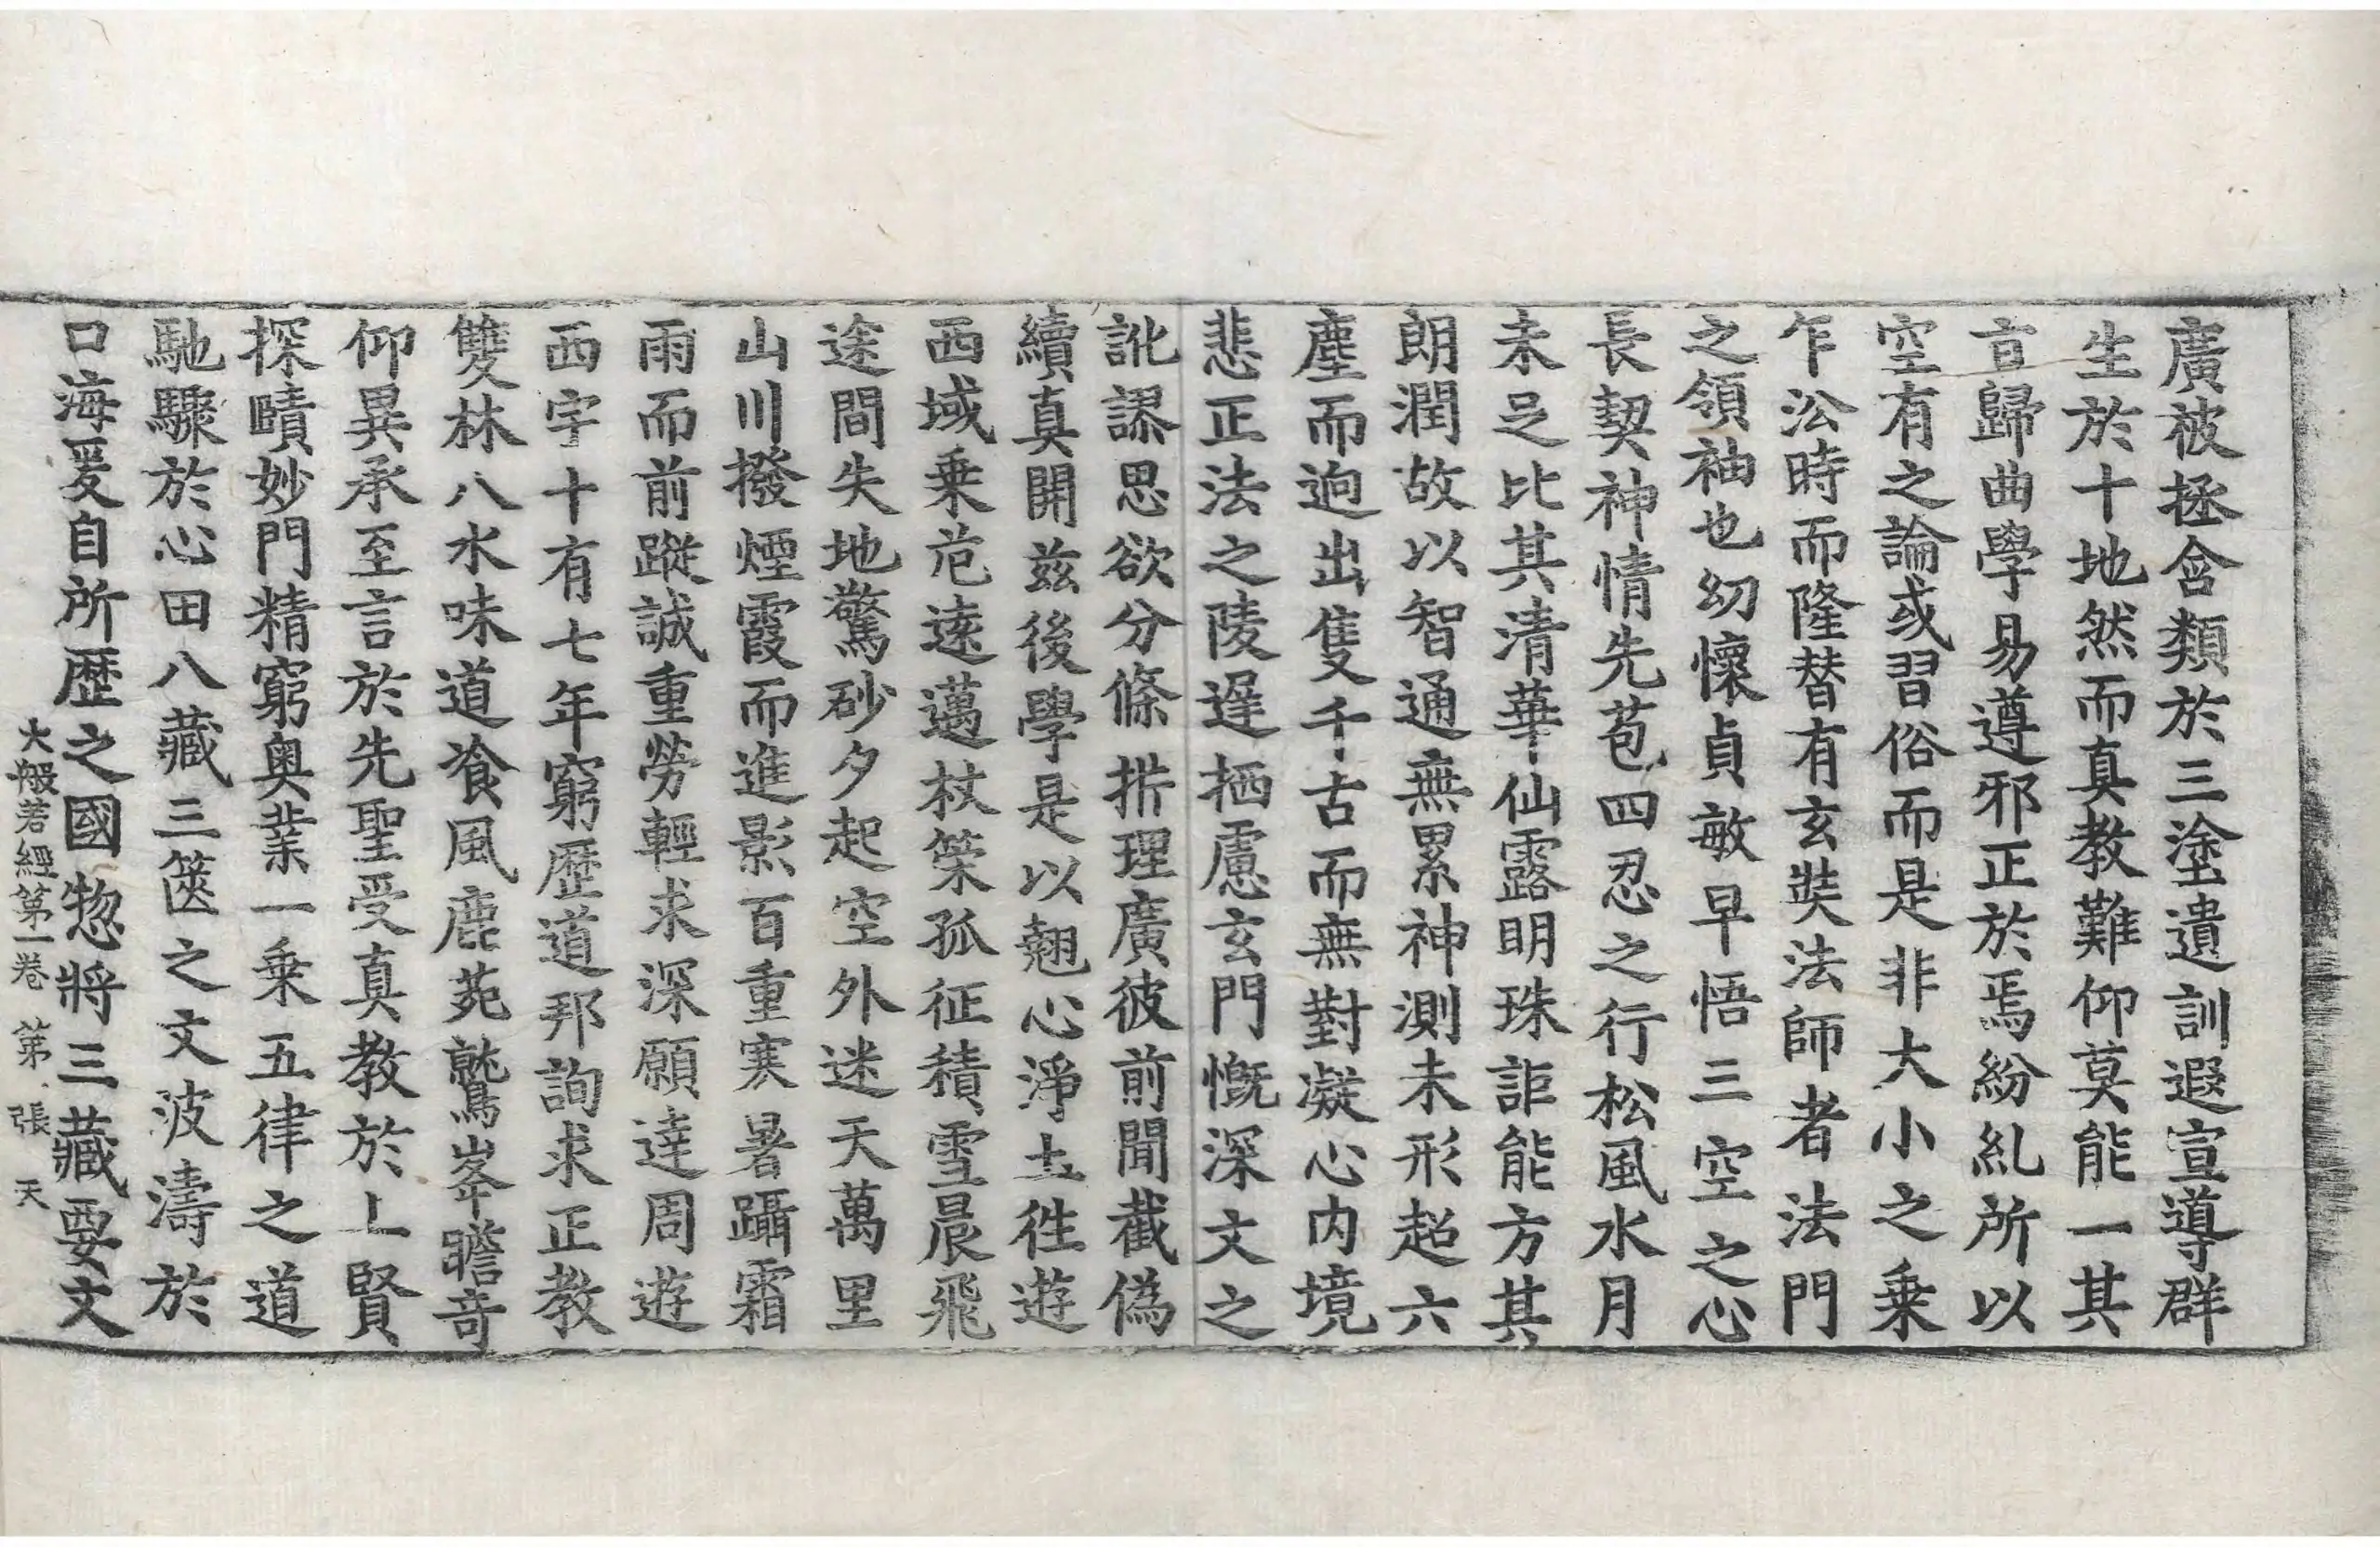 廣被拯含類於三塗遺訓遐宣導群
生於十地然而真教難仰莫能一其
㫖歸曲學易遵邪正於焉紛糺所以
空有之論或習俗而是非大小之乗
乍㳂時而隆替有玄奘法師者法門
之領袖也㓜懷貞敏早悟三空之心
長契神情先苞四忍之行松風水月
未足比其清華仙露明珠詎能方其
朗潤故以智通無累神測未形超六
塵而逈出隻千古而無對凝心内境
悲正法之陵遲栖慮玄門慨深文之
訛謬思欲分條㭊理廣彼前聞截偽
續真開兹後學是以翹心淨土往遊
西域乗危逺邁杖策孤征積雪晨飛
途間失地驚砂夕起空外迷天萬里
山川撥煙霞而進影百重寒暑躡霜
雨而前蹤誠重勞輕求深願達周遊
西宇十有七年窮歷道邦詢求正教
雙林八水味道飡風鹿苑鷲峯瞻奇
仰異承至言於先聖受真教於上賢
探賾妙門精窮奥業一乗五律之道
馳驟於心田八藏三篋之文波濤於
口海爰自所歷之國惣將三藏要文
大般若經第一卷 第 張 天